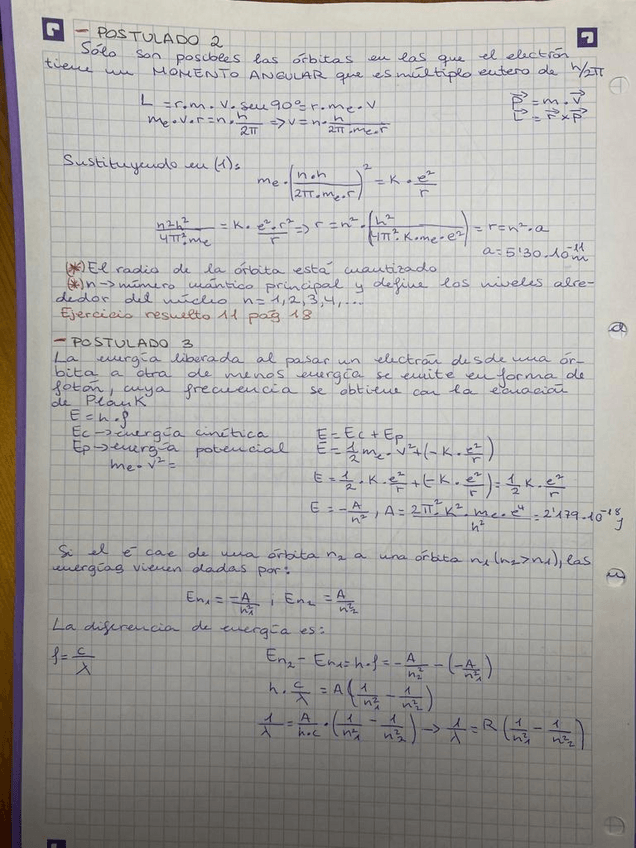 - POSTULADO 2
Sólo son posibles las órbitas en las que el electrón
tiene un MOMENTO ANGULAR que es múltiplo entero de h/2π
L = r·m·v·sen 90º = r·mₑ·v
p⃗ = m·v⃗
mₑ·v·r = n·h/2π => v = n·h/2π·mₑ·r
L⃗ = r⃗ x p⃗
Sustituyendo en (1):
mₑ·(n·h/2π·mₑ·r)² = K·e²/r
n²h²/4π²·mₑ = K·e²·r²/r => r = n²·(h²/4π²·K·mₑ·e²) = r = n²·a
a = 5'30·10⁻¹¹ m
(*) El radio de la órbita está cuantizado
(*) n -> número cuántico principal y define los niveles alre-
dedor del núcleo n = 1, 2, 3, 4, ...
Ejercicio resuelto 11 pág 18
- POSTULADO 3
La energía liberada al pasar un electrón desde una ór-
bita a otra de menos energía se emite en forma de
fotón, cuya frecuencia se obtiene con la ecuación
de Plank
E = h·f
Ec -> energía cinética
E = Ec + Ep
Ep -> energía potencial
E = 1/2 mₑ·v² + (-K·e²/r)
mₑ·v² =
E = 1/2·K·e²/r + (-K·e²/r) = 1/2 K·e²/r
E = -A/n², A = 2π²·K²·mₑ·e⁴/h² = 2'179·10⁻¹⁸ J
Si el é cae de una órbita n₂ a una órbita n₁ (n₂>n₁), las
energías vienen dadas por:
En₁ = -A/n₁² ; En₂ = A/n₂²
La diferencia de energía es:
f = c/λ
En₂ - En₁ = h·f = -A/n₂² - (-A/n₁²)
h·c/λ = A(1/n₁² - 1/n₂²)
1/λ = A/h·c·(1/n₁² - 1/n₂²) -> 1/λ = R(1/n₁² - 1/n₂²)